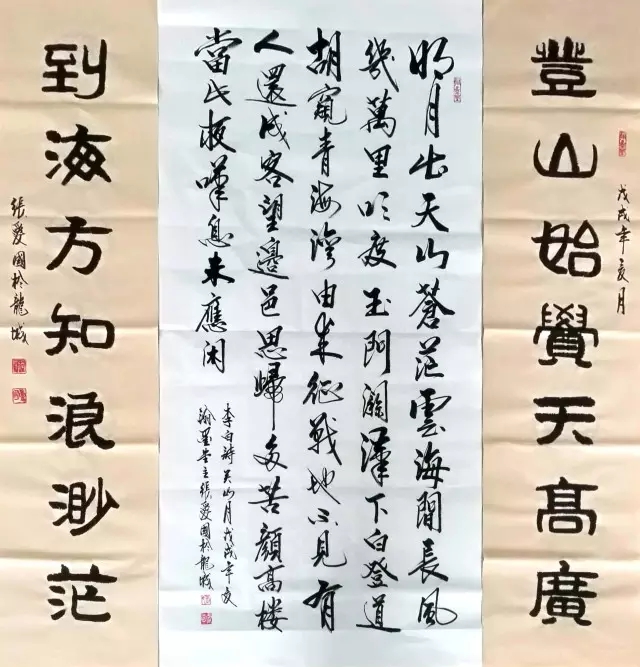 豐山始覺天高廣
戊戌年夏月
明月出天山蒼茫雲海間長風
幾萬里吹度玉門關漢下白登道
胡窺青海灣由來征戰地不見有
人還戍客望邊邑思歸多苦顏高樓
當此夜嘆息未應閑
李白詩关山月戊戌年夏
翰墨堂主張愛國於龍城
到海方知浪渺茫
張愛國於龍城